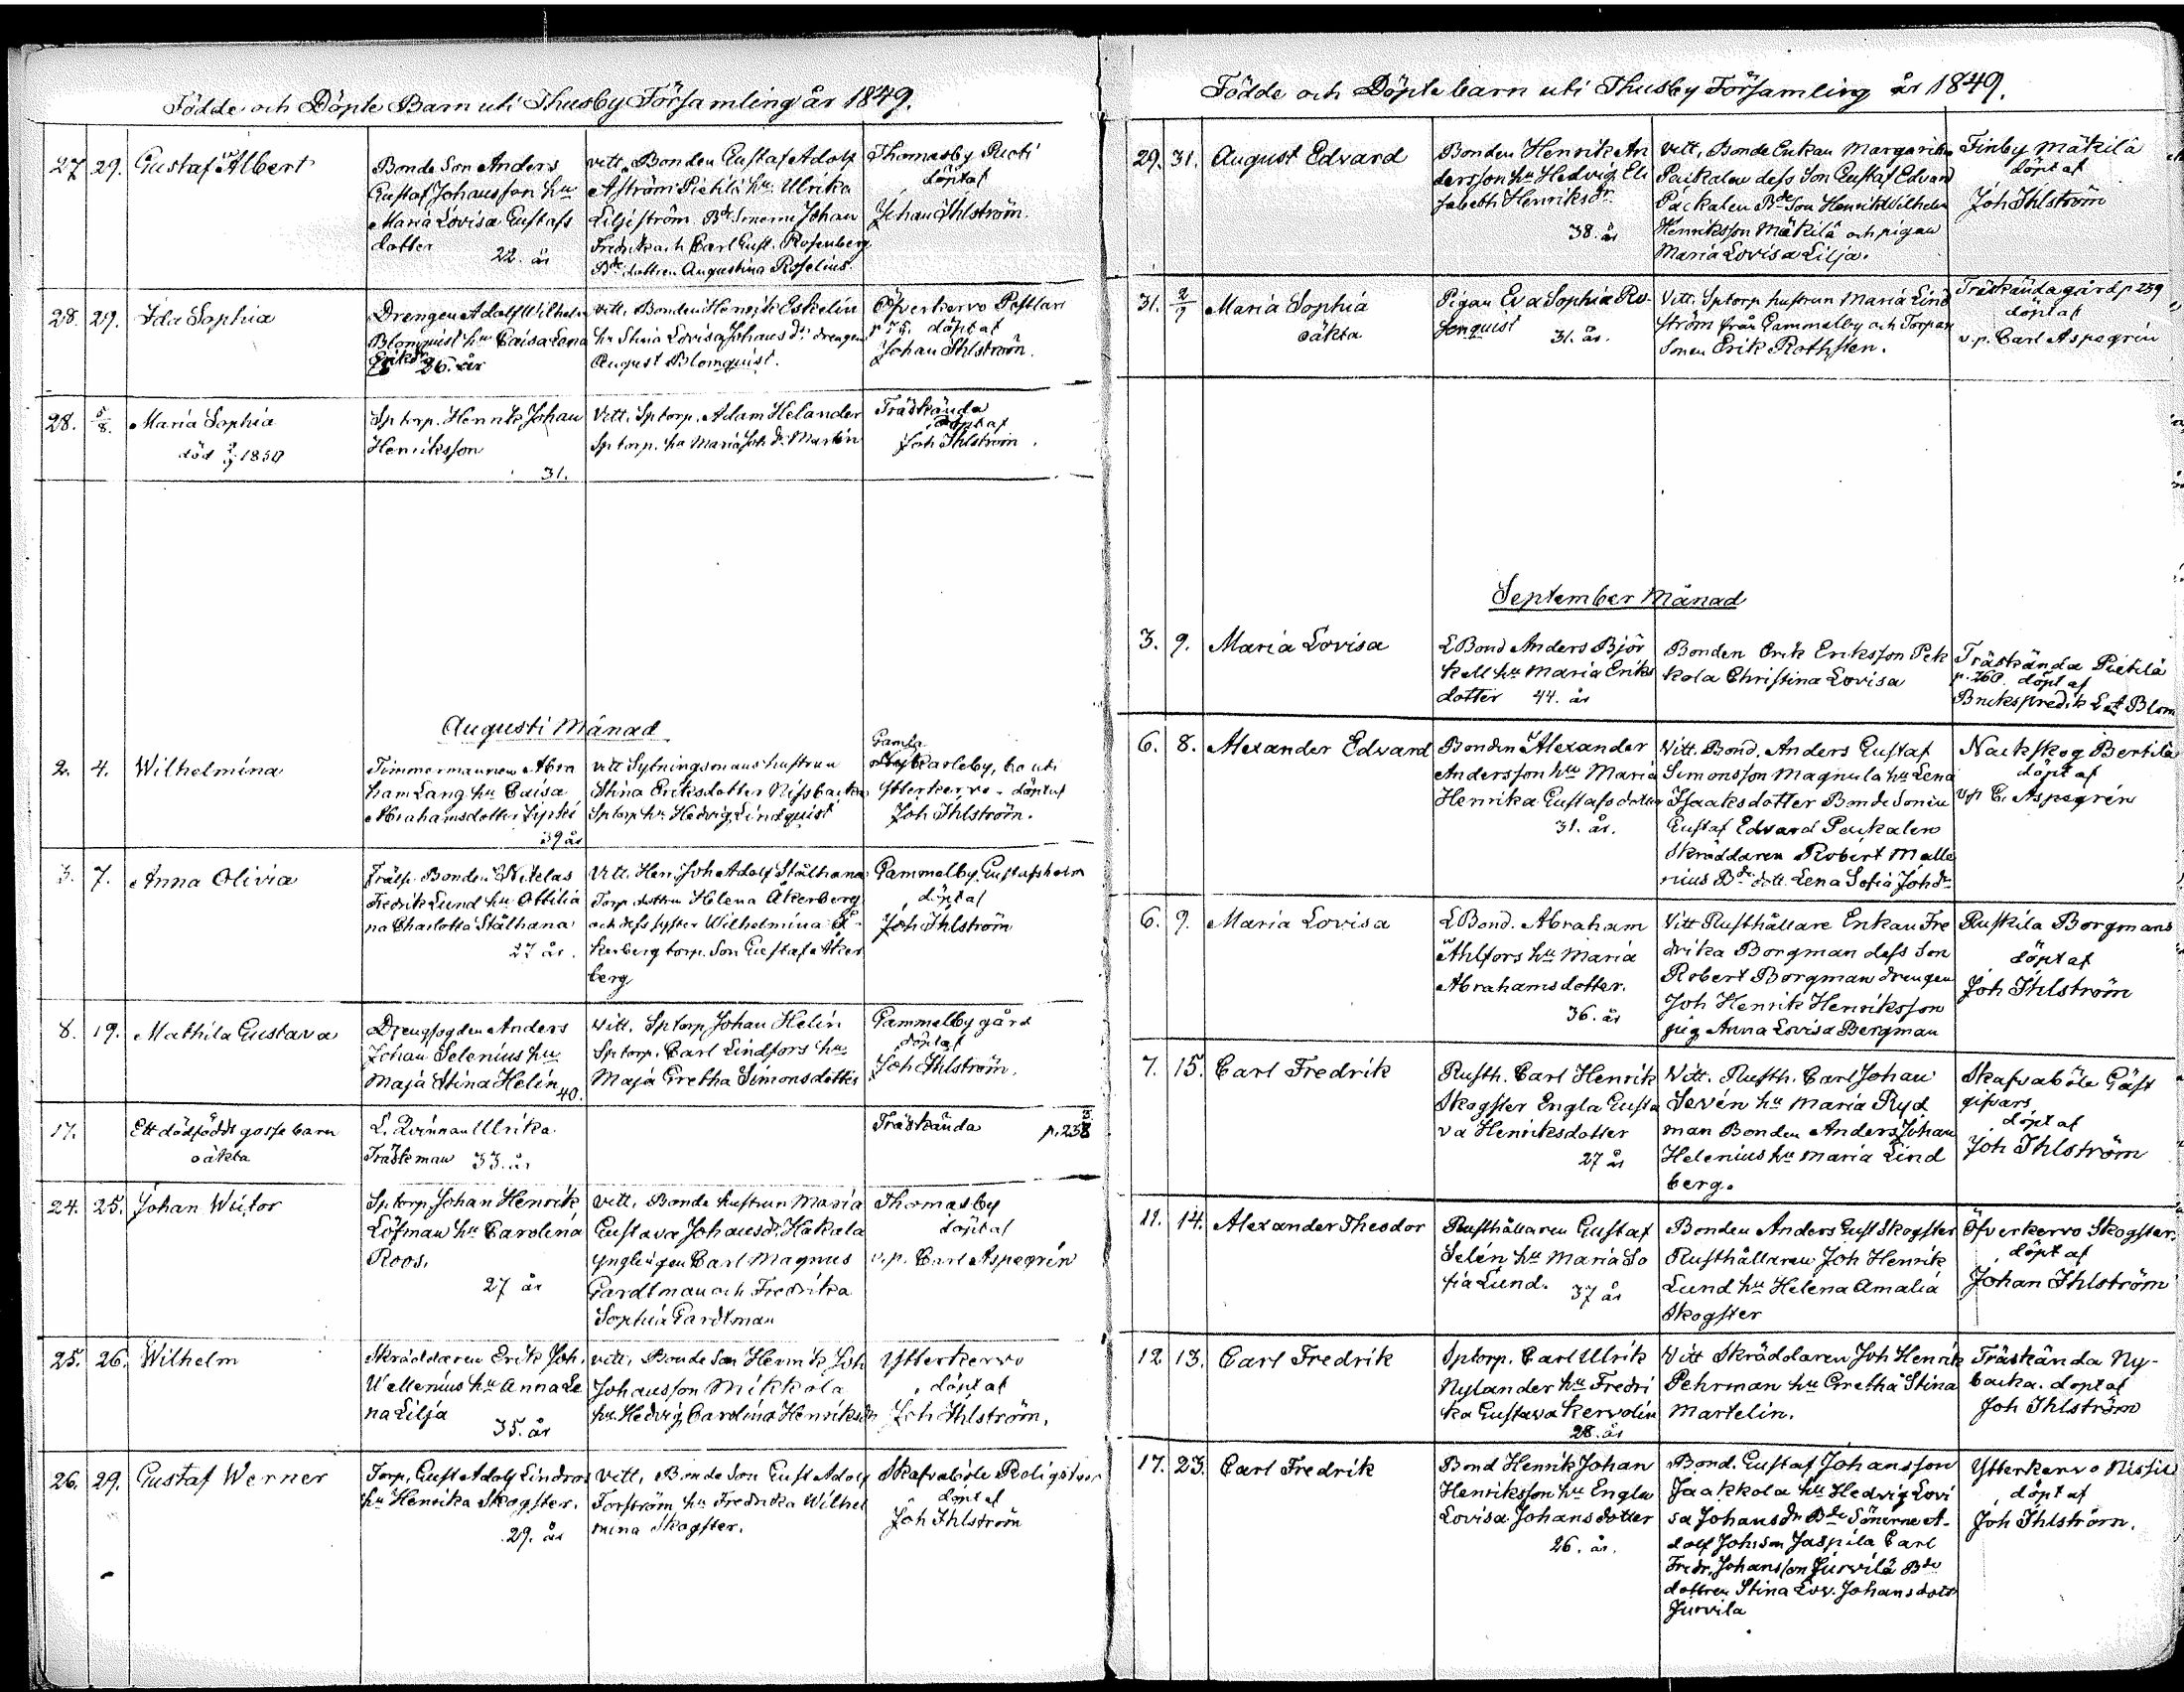 Födde och Döpte Barn uti Thusby Församling år 1849.
27 29. Gustaf Albert
Bonde Son Anders
Gustaf Johansson hu
Maria Lovisa Gustafs
dotter
22. år
vitt. Bonden Gustaf Adolf
Aström Pietilä hu. Ulrika
Liljeström Bde Sönerne Johan
Fredrik och Carl Gust. Rosenberg
Bde dottren Augustina Roselius.
Thomasby Ruoti
döpt af
Johan Ihlström.
28. 29. Ida Sophia
Drengen Adolf Wilhelm
Blomquist hu Caisa Lena
Eriksdr 36. år
vitt. Bonden Henrik Eskelin
hu Stina Lovisa Johans dr drengen
August Blomquist.
Öfverkervo
döpt af
Johan Ihlström.
28. 5/8. Maria Sophia
död 1850
Sptorp. Henrik Johan
Henriksson
31.
Vitt. Sptorp. Adam Helander
Sptorp. hu Maria Joh dr Martin
Träskända
döpt af
Joh Ihlström.
Augusti Månad
2. 4. Wilhelmina
Timmermannen Abra
ham Lang hu Caisa
Abrahamsdotter
39 år
vitt Sytningsmans hustrun
Stina Eriksdotter Nissbacka
Sptorp hu Hedvig Lindquist
Gamla
karleby, bo uti
Ytterkervo - döpt af
Joh Ihlström.
3. 7. Anna Olivia
Frälse Bonden Niklas
Fredrik Lund hu Ottilia
na Charlotta Stålhana
27 år.
Vitt. Herr Joh Adolf Stålhana
Torp. dottren Helena Åkerberg
och dess syster Wilhelmina Å-
kerberg torp. Son Gustaf Åker
berg
Gammelby Gustafsholm
döpt af
Joh Ihlström
8. 19. Mathila Gustava
Drengfogden Anders
Johan Selenius hu
Maja Stina Helin
40.
vitt. Sptorp Johan Helin
Sptorp. Carl Lindfors hu
Maja Gretha Simonsdotter
Gammelby gård
döpt af
Joh Ihlström.
17. Ett dödfödt gosse barn
oäkta
L. Qvinnan Ulrika
Träskman 33. år
Träskända p. 238
24. 25. Johan Wictor
Sptorp. Johan Henrik
Löfman hu Carolina
Roos.
27 år
vitt. Bonde hustrun Maria
Gustava Johansdr Hakala
ynglingen Carl Magnus
Gardtman och Fredrika
Sophia Gardtman
Thomasby
döpt af
v.p. Carl Aspegrén
25. 26. Wilhelm
Skräddaren Erik Joh.
Wellenius hu Anna Le
na Lilja
35. år
vitt. Bonde Son Henrik Joh
Johansson Mikkola
hu. Hedvig Carolina Henriksdr
Ytterkervo
döpt af
Joh Ihlström.
26. 29. Gustaf Werner
Torp. Gust Adolf Lindroos
hu Henrika Skogster.
29. år
vitt. Bonde Son Gust Adolf
Forsström hu Fredrika Wilhel
mina Skogster.
Skafvaböle
döpt af
Joh Ihlström
Födde och Döpte barn uti Thusby Församling år 1849.
29. 31. August Edvard
Bonden Henrik An
dersson hu Hedvig Eli
sabeth Henriksdr.
38. år
Vitt. Bonde Enkan Margaretha
Paikalen dess Son Gustaf Edvard
Paikalen Bde Son Henrik Wilhelm
Henriksson Mäkilä och pigan
Maria Lovisa Lilja.
Finby Mäkilä
döpt af
Joh Ihlström
31. 2/9 Maria Sophia
oäkta
Pigan Eva Sophia Ro-
senquist
31. år.
Vitt. Sptorp hustrun Maria Lind
ström från Gammelby och Torpar
Sonen Erik Rothsten.
Träskända gård p 239
döpt af
v.p. Carl Aspegrén
September Månad
3. 9. Maria Lovisa
L Bond Anders Björ
kell hu Maria Eriks
dotter 44. år
Bonden Erik Eriksson Pek
kola Christina Lovisa
Träskända Pietilä
p. 260. döpt af
Brukspredik Blom
6. 8. Alexander Edvard
Bonden Alexander
Andersson hu Maria
Henrika Gustafsdotter
31. år.
Vitt. Bond. Anders Gustaf
Simonsson Magnula hu Lena
Isaaksdotter Bonde Sonen
Gustaf Edvard Paikalen
Skräddaren Robert Malle
nius Bde dott. Lena Sofia Johdr
Nackskog Bertila
döpt af
vp C. Aspegrén
6. 9. Maria Lovisa
L Bond. Abraham
Ahlfors hu Maria
Abrahamsdotter.
36. år
Vitt Rusthållare Enkan Fre
drika Borgman dess Son
Robert Borgman drengen
Joh Henrik Henriksson
pig Anna Lovisa Bergman
Ruskila Borgmans
döpt af
Joh Ihlström
7. 15. Carl Fredrik
Rusth. Carl Henrik
Skogster Engla Gusta
va Henriksdotter
27 år
Vitt. Rusth. Carl Johan
Sevén hu Maria Ryd
man Bonden Anders Johan
Helenius hu Maria Lind
berg.
Skafvaböle Gäst
gifvars
döpt af
Joh Ihlström
11. 14. Alexander Theodor
Rusthållaren Gustaf
Selén hu Maria So
fia Lund. 37 år
Bonden Anders Gust Skogster
Rusthållaren Joh Henrik
Lund hu Helena Amalia
Skogster
Öfverkervo Skogster.
döpt af
Johan Ihlström
12 13. Carl Fredrik
Sptorp. Carl Ulrik
Nylander hu Fredri
ka Gustava Kervolin
28. år
Vitt Skräddaren Joh Henrik
Pehrman hu Gretha Stina
Martelin.
Träskända Ny-
backa. döpt af
Joh Ihlström
17. 23. Carl Fredrik
Bond Henrik Johan
Henriksson hu Engla
Lovisa Johansdotter
26. år.
Bond. Gustaf Johansson
Jaakkola hu Hedvig Lovi
sa Johansdr Bde Sönerne A-
dolf Johsson Jaspila Carl
Fredr. Johansson Jurvila Bde
dottren Stina Lov. Johansdotr
Jurvila
Ytterkervo Nissilä
döpt af
Joh Ihlström.